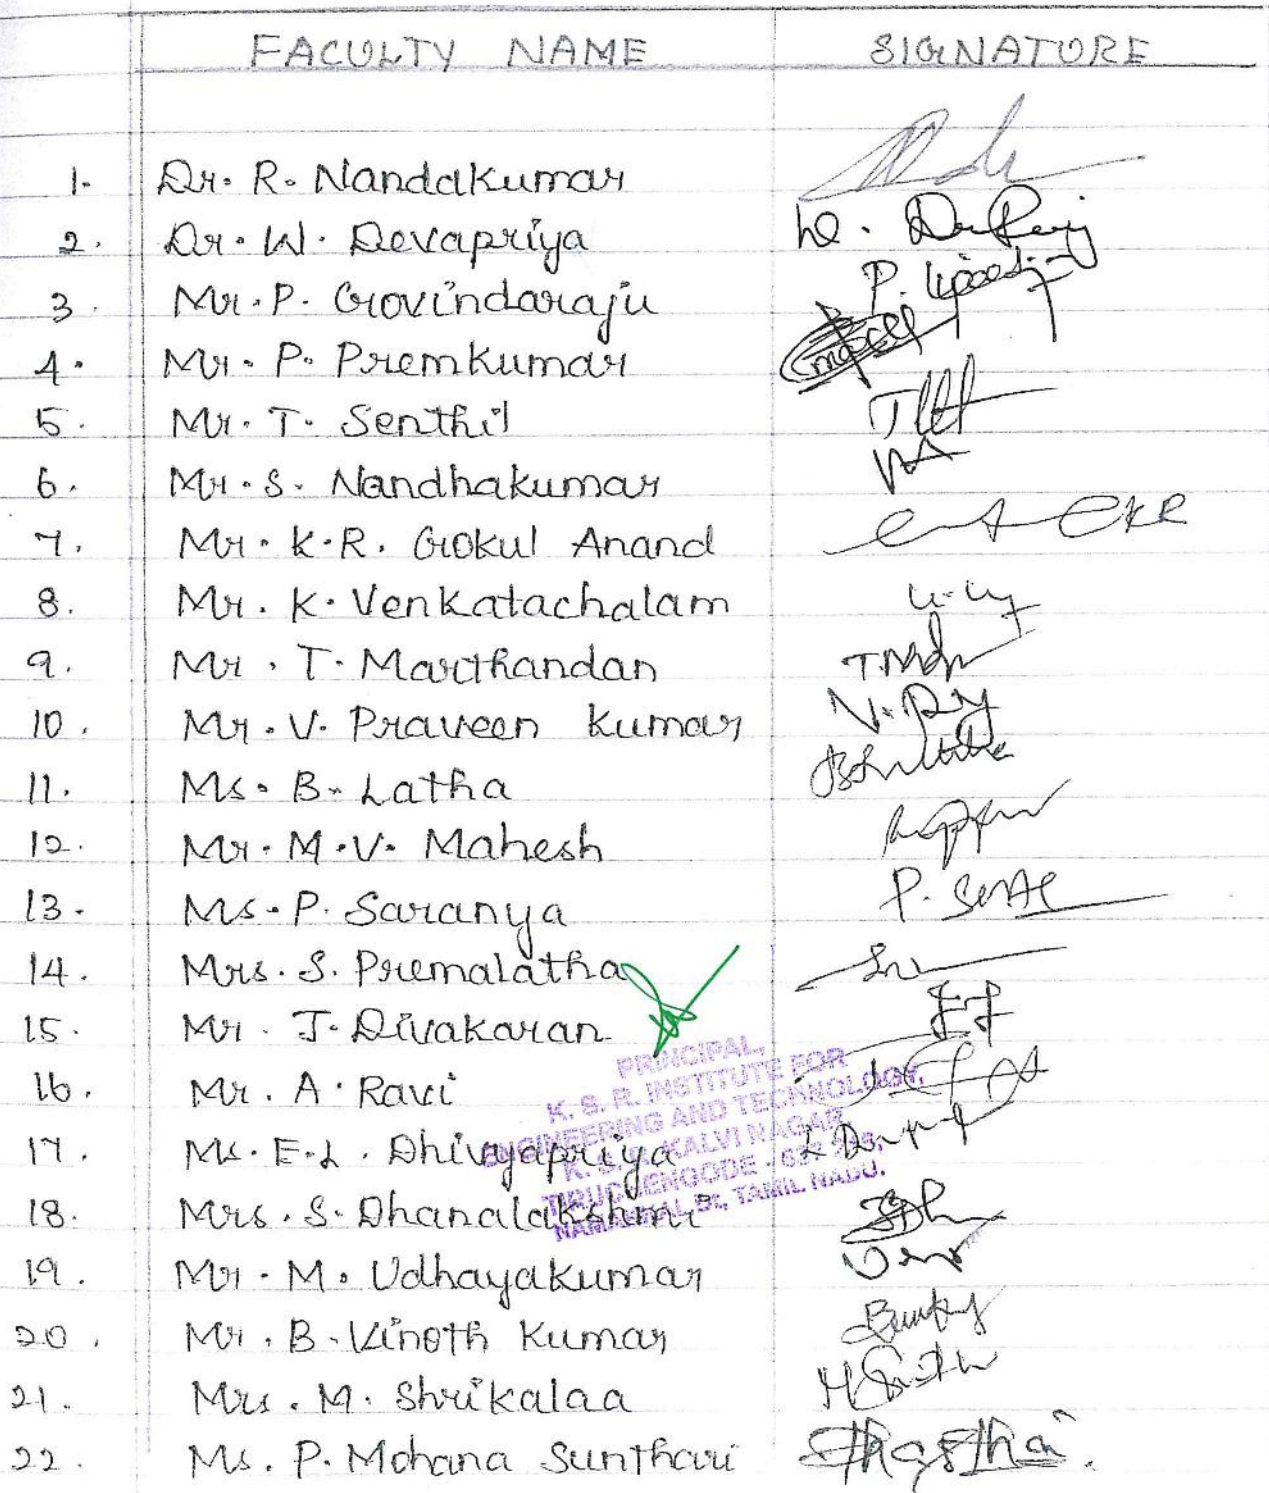 FACULTY NAME SIGNATURE
1. Dr. R. Nandakumar
2. Dr. W. Devapriya
3. Mr. P. Govindaraju
4. Mr. P. Premkumar
5. Mr. T. Senthil
6. Mr. S. Nandhakumar
7. Mr. K.R. Gokul Anand
8. Mr. K. Venkatachalam
9. Mr. T. Marthandan
10. Mr. V. Praveen Kumar
11. Ms. B. Latha
12. Mr. M.V. Mahesh
13. Ms. P. Saranya
14. Mrs. S. Premalatha
15. Mr. J. Divakaran
16. Mr. A. Ravi
17. Ms. E.L. Dhivyapriya
18. Mrs. S. Dhanalakshmi
19. Mr. M. Udhayakumar
20. Mr. B. Vinoth Kumar
21. Mrs. M. Shrikalaa
22. Ms. P. Mohana Sunthari
PRINCIPAL,
K. S. R. INSTITUTE FOR
ENGINEERING AND TECHNOLOGY,
K. S. R. KALVI NAGAR
TIRUCHENGODE -
NAMAKKAL Dt, TAMIL NADU.